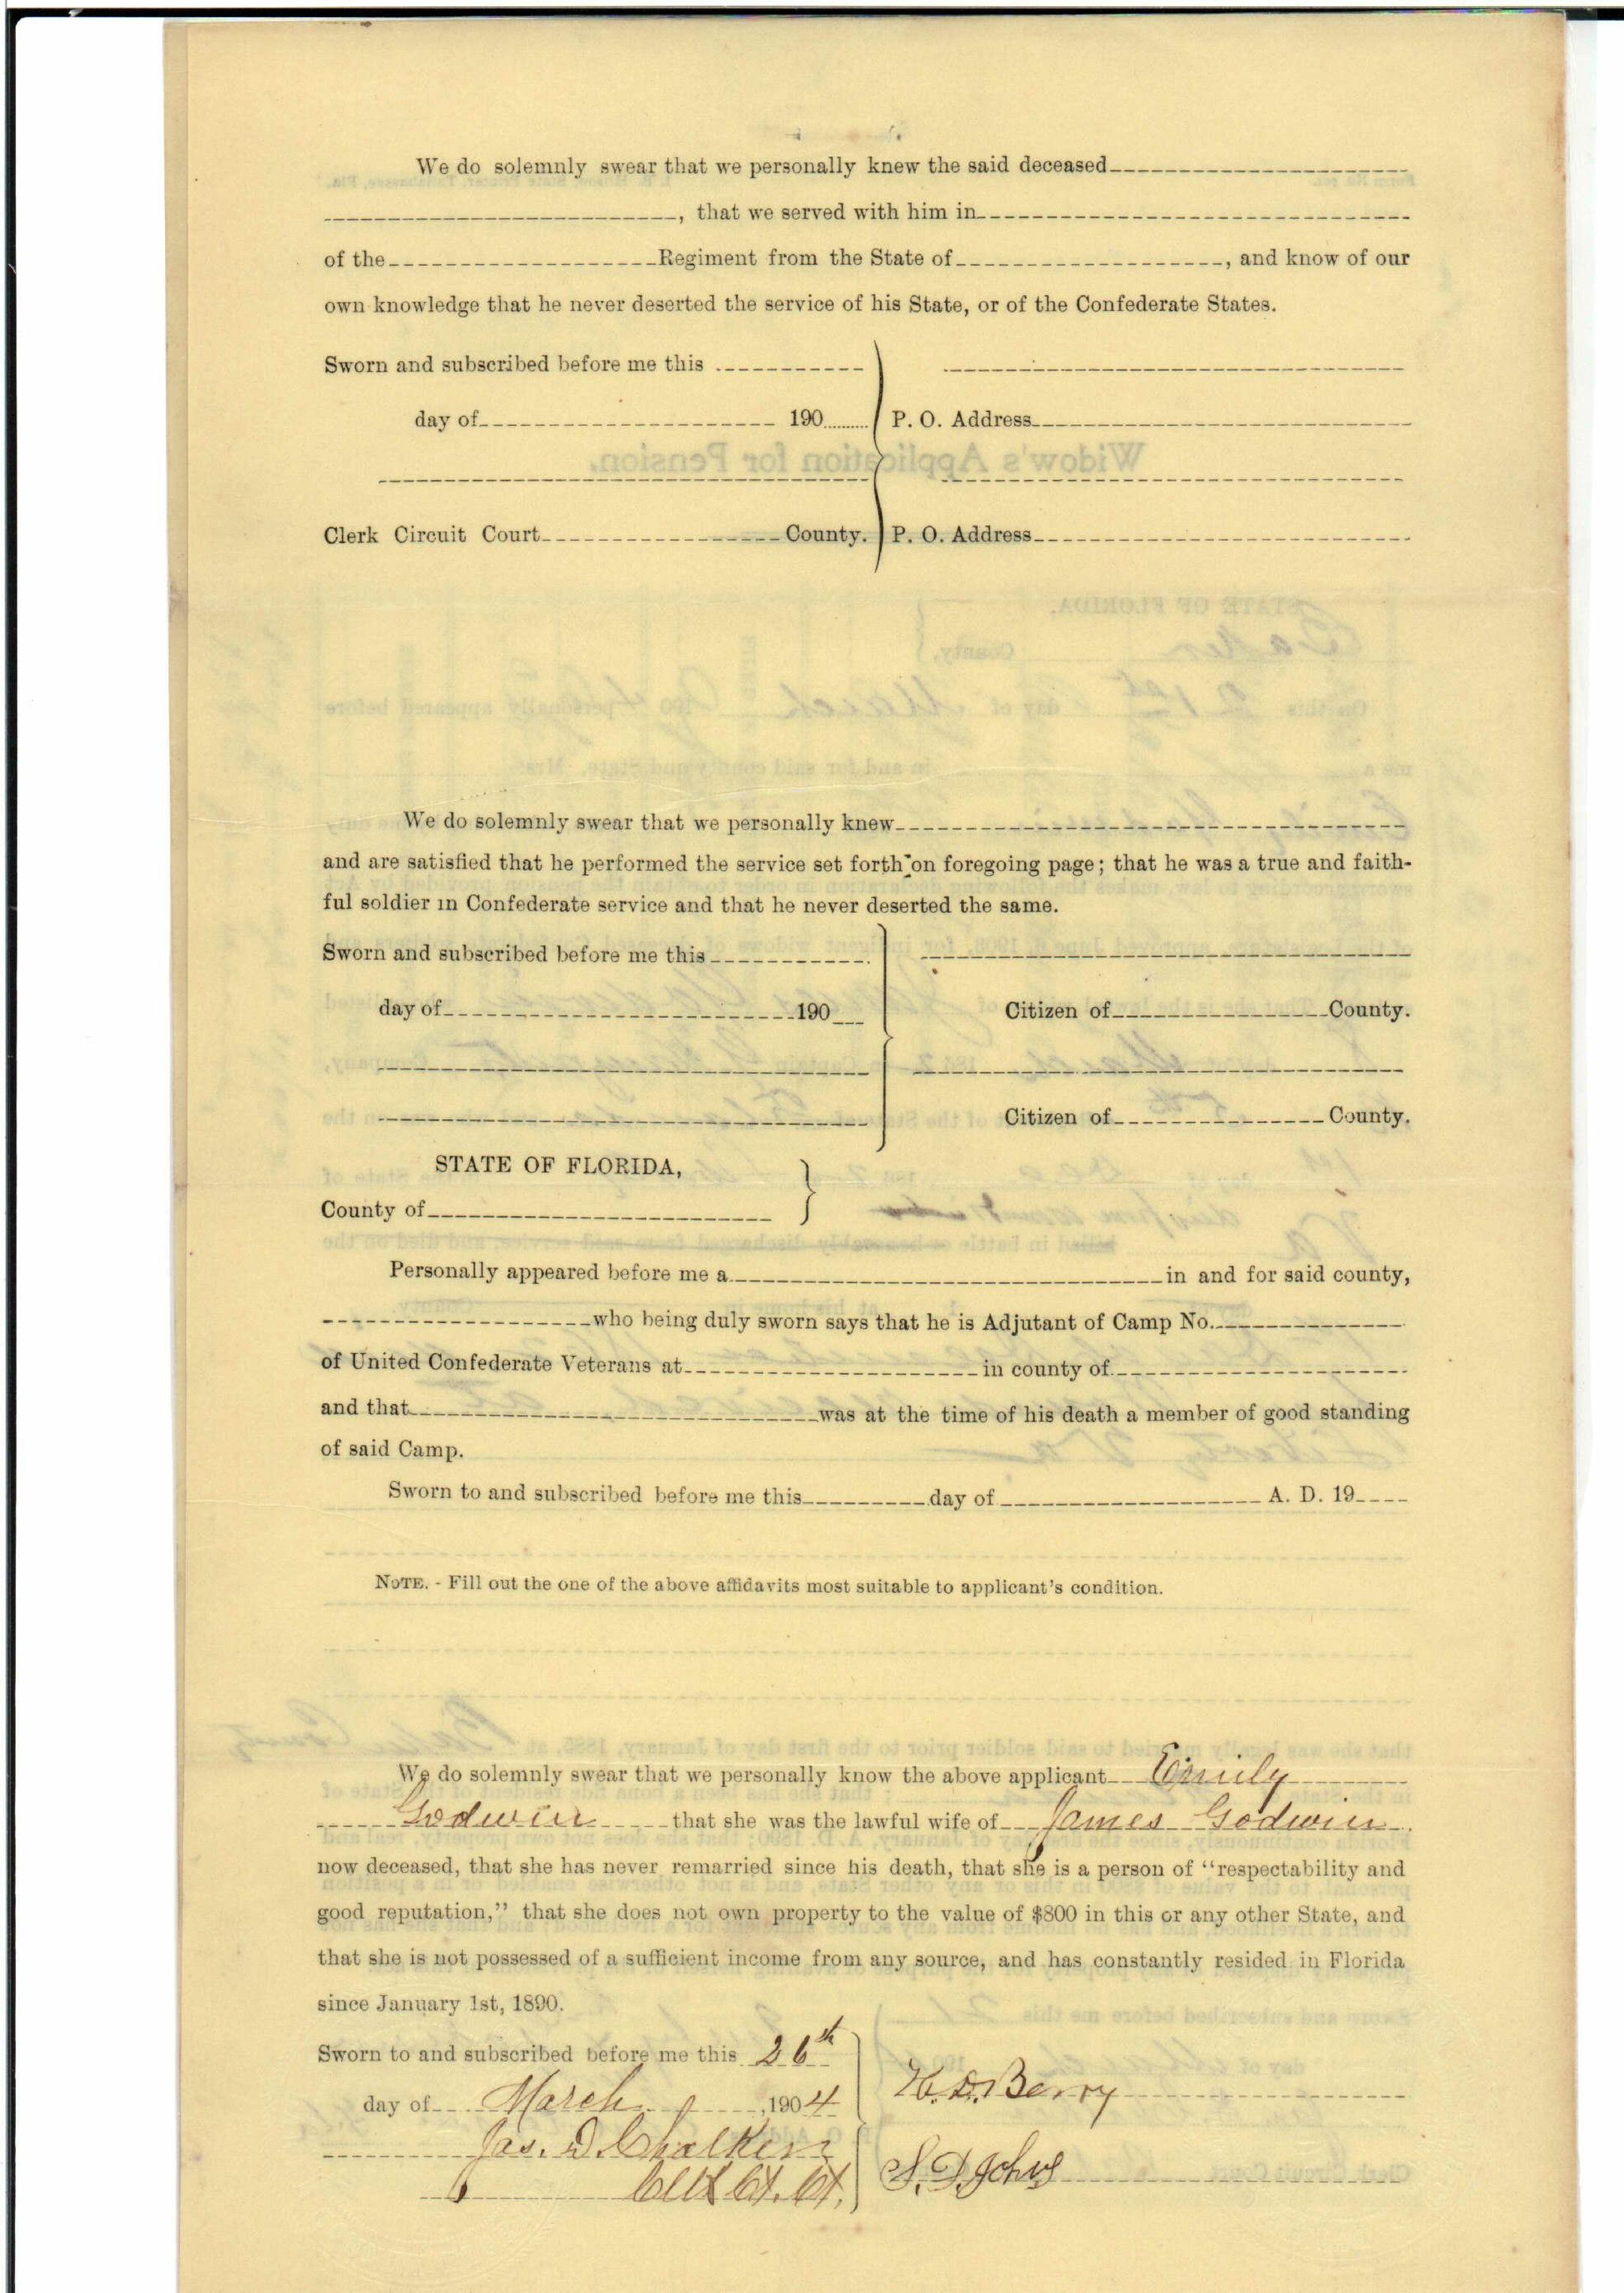 We do solemnly swear that we personally knew the said deceased
, that we served with him in
of the Regiment from the State of , and know of our
own knowledge that he never deserted the service of his State, or of the Confederate States.
Sworn and subscribed before me this
day of 190 P. O. Address
Widow's Application for Pension.
Clerk Circuit Court County. P. O. Address
STATE OF FLORIDA.
County,
On this 21st day of March 1904 personally appeared before
in and for said county and State, Mrs.
We do solemnly swear that we personally knew
and are satisfied that he performed the service set forth on foregoing page; that he was a true and faith-
ful soldier in Confederate service and that he never deserted the same.
Sworn and subscribed before me this
day of 190 Citizen of County.
Citizen of County.
STATE OF FLORIDA,
County of
Personally appeared before me a in and for said county,
who being duly sworn says that he is Adjutant of Camp No.
of United Confederate Veterans at in county of
and that was at the time of his death a member of good standing
of said Camp.
Sworn to and subscribed before me this day of A. D. 19
NOTE. - Fill out the one of the above affidavits most suitable to applicant's condition.
We do solemnly swear that we personally know the above applicant Emily
Godwin that she was the lawful wife of James Godwin
now deceased, that she has never remarried since his death, that she is a person of "respectability and
good reputation," that she does not own property to the value of $800 in this or any other State, and
that she is not possessed of a sufficient income from any source, and has constantly resided in Florida
since January 1st, 1890.
Sworn to and subscribed before me this 26th
day of March, 1904 H. D. Berry
Jas. D. Chalker
Clk Ct. Ct. S. D. Johns